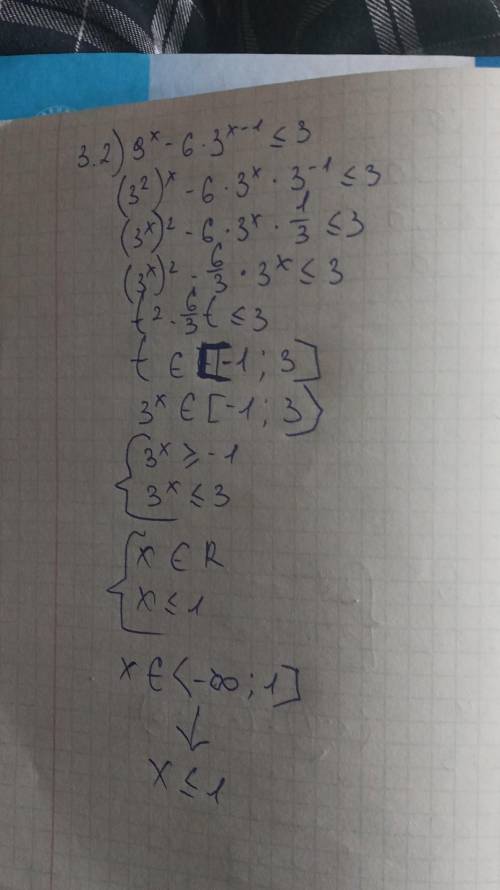 3.2) 9^x - 6 · 3^{x-1} ≤ 3
(3^2)^x - 6 · 3^x · 3^{-1} ≤ 3
(3^x)^2 - 6 · 3^x · 1/3 ≤ 3
(3^x)^2 - 6/3 · 3^x ≤ 3
t^2 - 6/3 t ≤ 3
t ∈ [-1; 3]
3^x ∈ [-1; 3]
{ 3^x ≥ -1
3^x ≤ 3
{ x ∈ R
x ≤ 1
x ∈ (-∞; 1]
↓
x ≤ 1